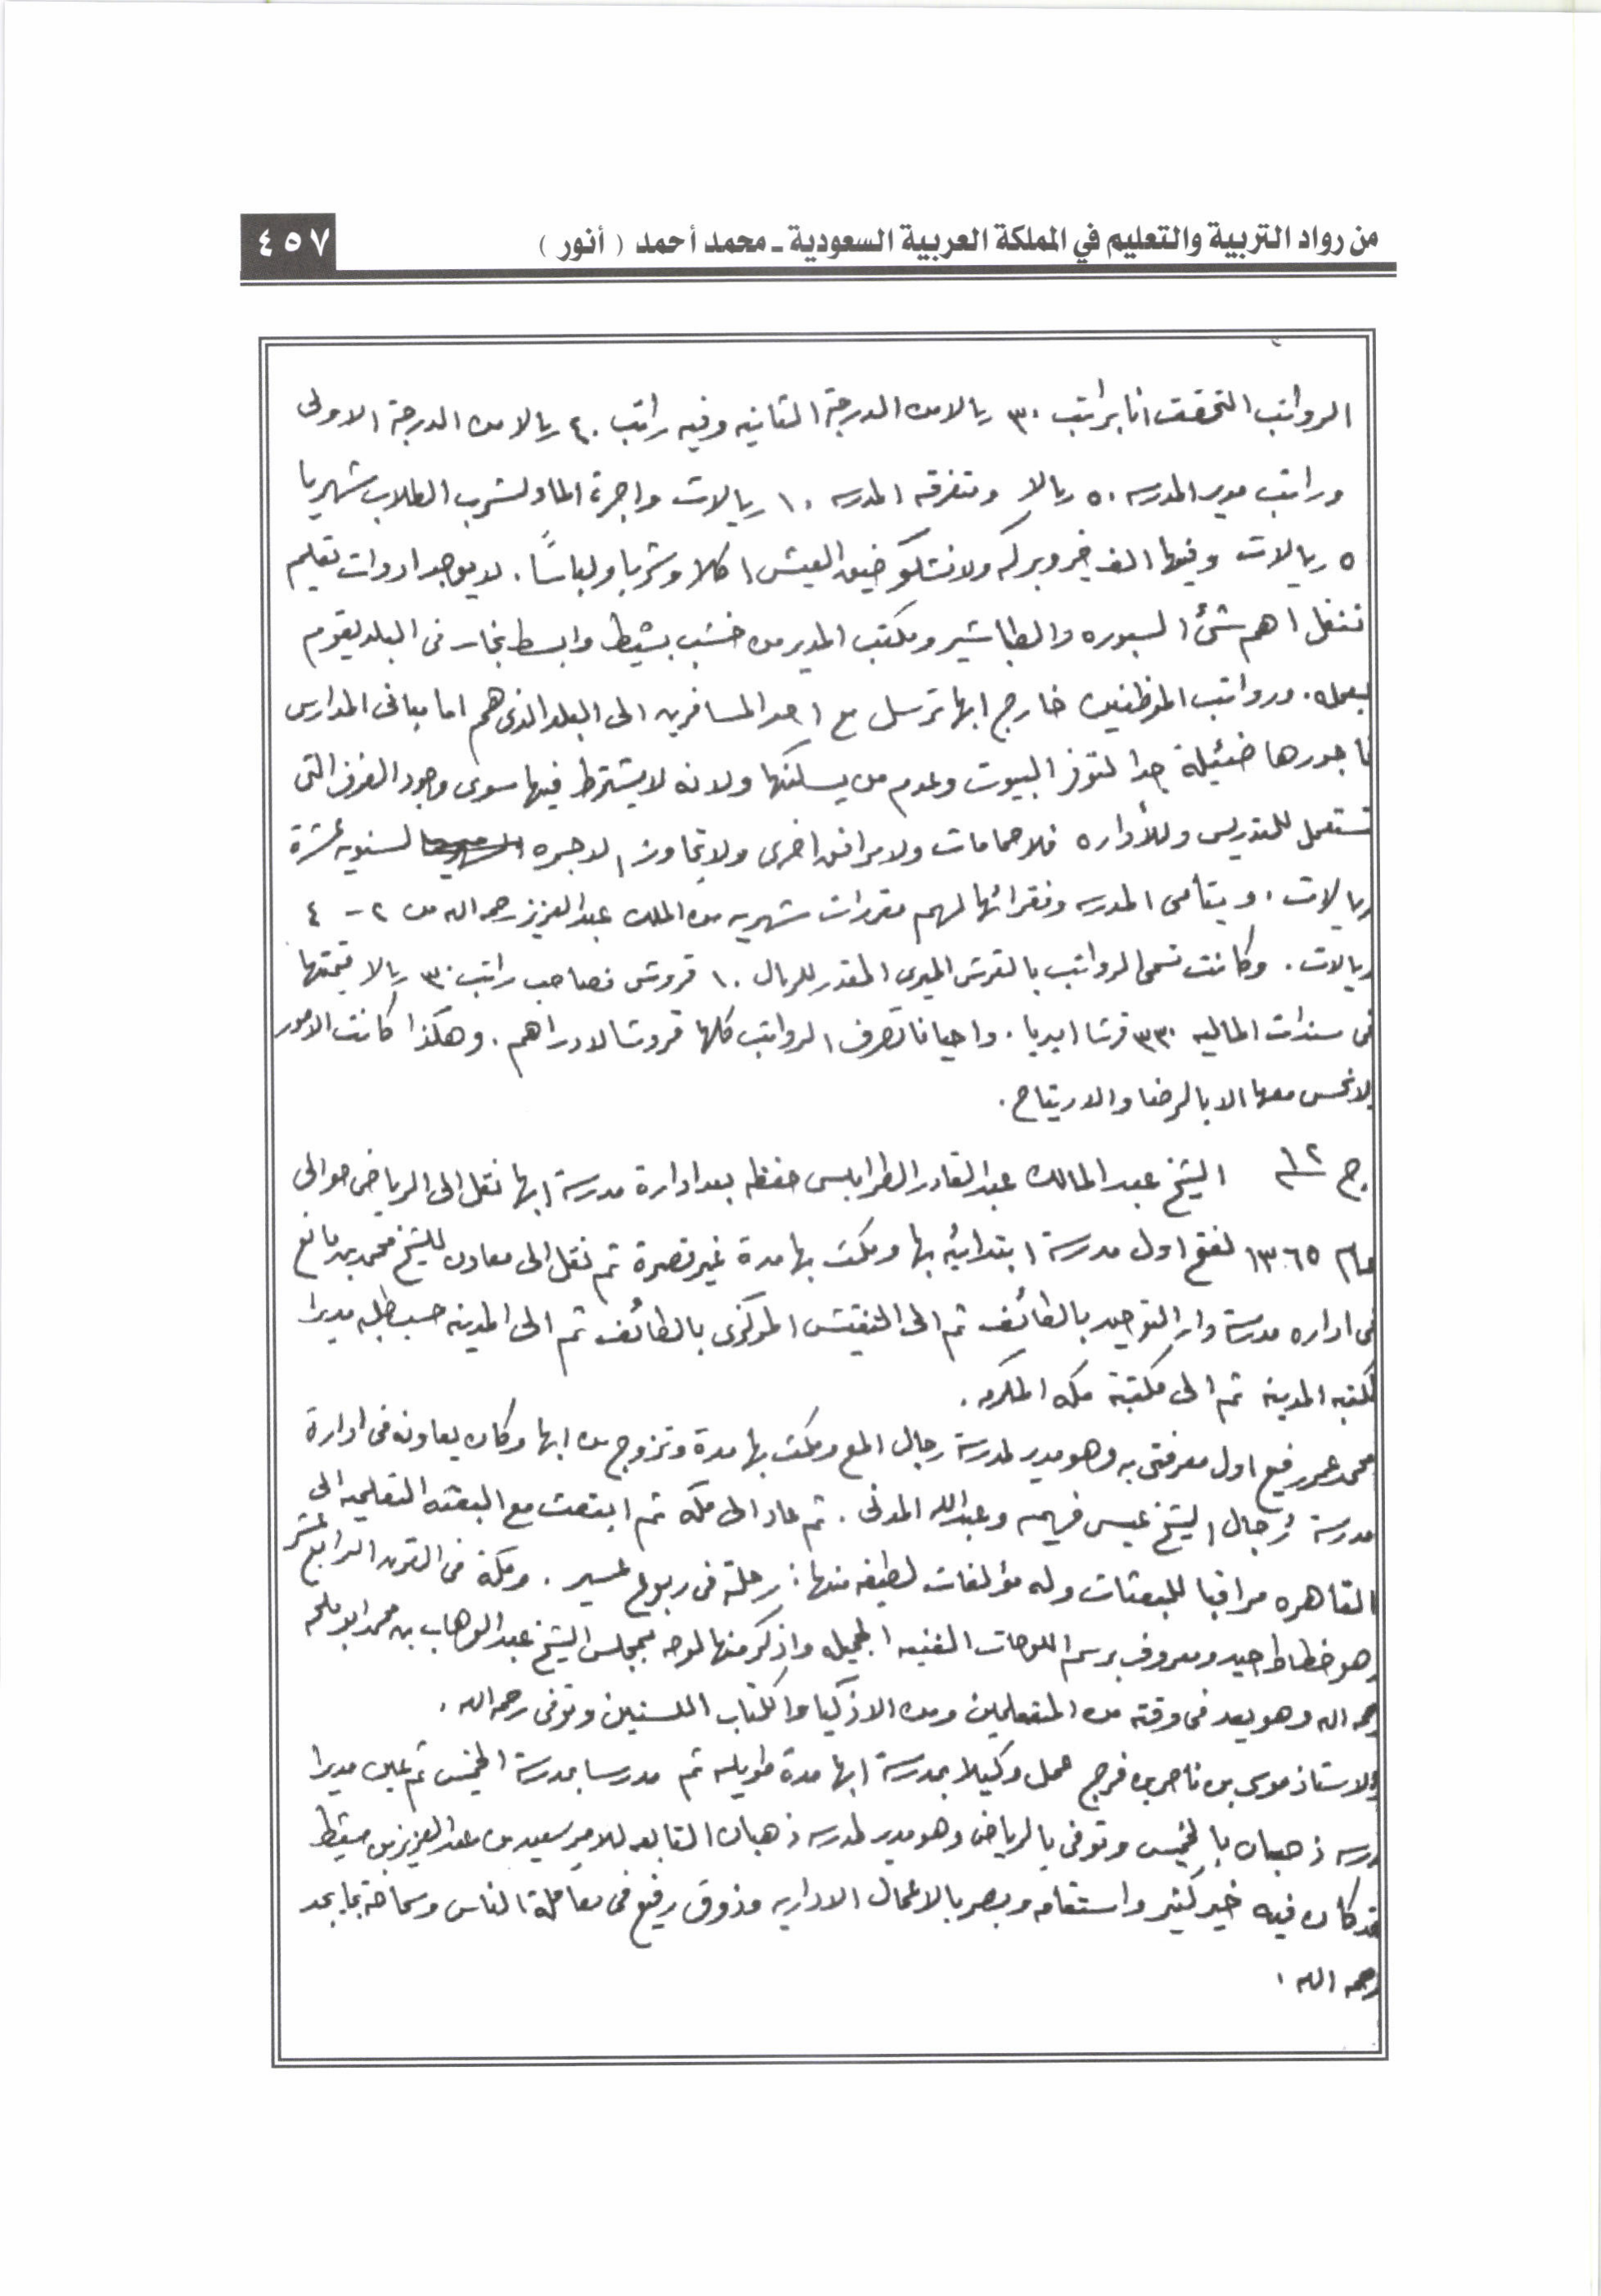 من رواد التربية والتعليم في المملكة العربية السعودية ـ محمد أحمد ( أنور )
٤٥٧
الرواتب التحقت انا براتب ٣٠ ريالا من الدرجة الثانيه وفيه راتب ٤٠ ريالا من الدرجة الاولى
وراتب مدير المدرسه ٥٠ ريالا ومتفرقه المدرسه ١٠ ريالات واجرة الماء لشرب الطلاب شهريا
٥ ريالات وفيها الف خير وبركه ولا نشكو ضيق العيش اكلا وشربا ولباسًا. لا يوجد ادوات تعليم
تنقل اهم شئ السبوره والطباشير ومكتب المدير من خشب بسيط وابسط نجار في البلد يقوم
بعمله. ورواتب الموظفين خارج ابها ترسل مع احد المسافرين الى البلد الذى هم اما مبانى المدارس
فاجورها ضئيلة جدا لتوفر البيوت وعدم من يسكنها ولانه لا يشترط فيها سوى وجود الغرف التى
تستعمل للتدريس وللأداره فلا حمامات ولا مرافق اخرى ولا يتجاوز الاجره السنويه عشرة
ريالات. ويتامى المدرسه وفقرائها لهم مقررات شهريه من الملك عبدالعزيز رحمه الله من ٢ - ٤
ريالات. وكانت تسمى الرواتب بالقرش الميرى المقدر للريال ١٠ قروش فصاحب راتب ٣٠ ريالا قيمتها
فى سندات الماليه ٣٣٠ قرشا اميريا. واحيانا تصرف الرواتب كلها قروشا لا دراهم. وهكذا كانت الامور
لا نحس معها الا بالرضا والارتياح.
ج ١٢ الشيخ عبد المالك عبدالقادر الطرابلسى حفظه بعد ادارة مدرسة ابها نقل الى الرياض حوالى
عام ١٣٦٥ لفتح اول مدرسة ابتدائيه بها ومكث بها مدة غير قصيرة ثم نقل الى معاون للشيخ محمد بن مانع
فى اداره مدرسة دار التوحيد بالطائف ثم الى التفتيش المركزى بالطائف ثم الى المدينه حسب طلبه مديرا
لمكتبه المدينه ثم الى مكتبة مكه المكرمه.
محمد عمر رفيع اول معرفتى به وهو مدير لمدرسة رجال المع ومكث بها مدة وتزوج من ابها وكان يعاونه فى ادارة
مدرسة رجال الشيخ عيسى فهيم وعبدالله المدنى. ثم عاد الى مكه ثم ابتعث مع البعثه التعليميه الى
القاهره مراقبا للبعثات وله مؤلفات لطيفه منها: رحلة فى ربوع عسير. ومكة فى القرن الرابع عشر
وهو خطاط جيد ومعروف برسم اللوحات الفنيه الجميله واذكر منها لوحه بمجلس الشيخ عبدالوهاب بن محمد ابو ملحه
رحمه الله وهو يعد فى وقته من المتعلمين ومن الاذكياء والكتاب اللسنين وتوفى رحمه الله.
والاستاذ موسى بن ناصر بن فرج عمل وكيلا بمدرسة ابها مدة طويله ثم مدرسا بمدرسة الخميس ثم عين مديرا
مدرسه ذهبان بالخميس وتوفى بالرياض وهو مدير لمدرسه ذهبان التابعه للامير سعيد بن عبدالعزيز بن مشيط
قد كان فيه خير كثير واستقامه وبصر بالاعمال الاداريه وذوق رفيع فى معاملة الناس وسماحة بما يجد
رحمه الله.